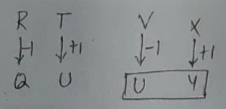 R T V X
-1 +1 -1 +1
Q U U Y